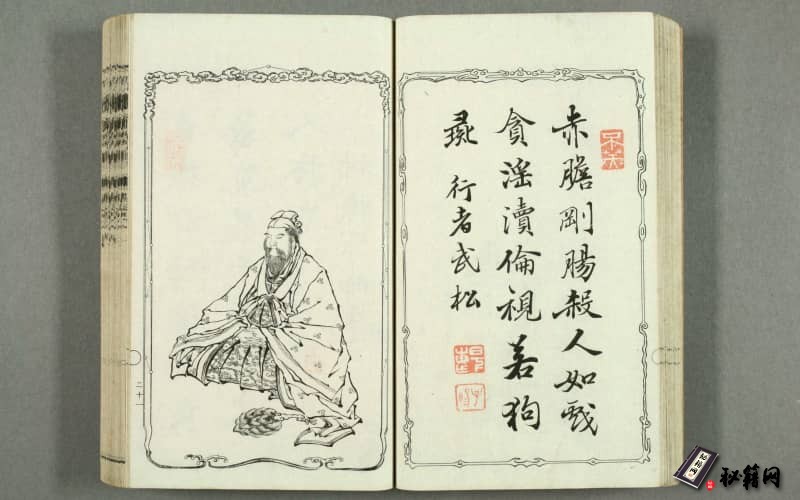 赤膽剛腸殺人如戲
貪淫瀆倫視若狗
彘 行者武松
秘籍网